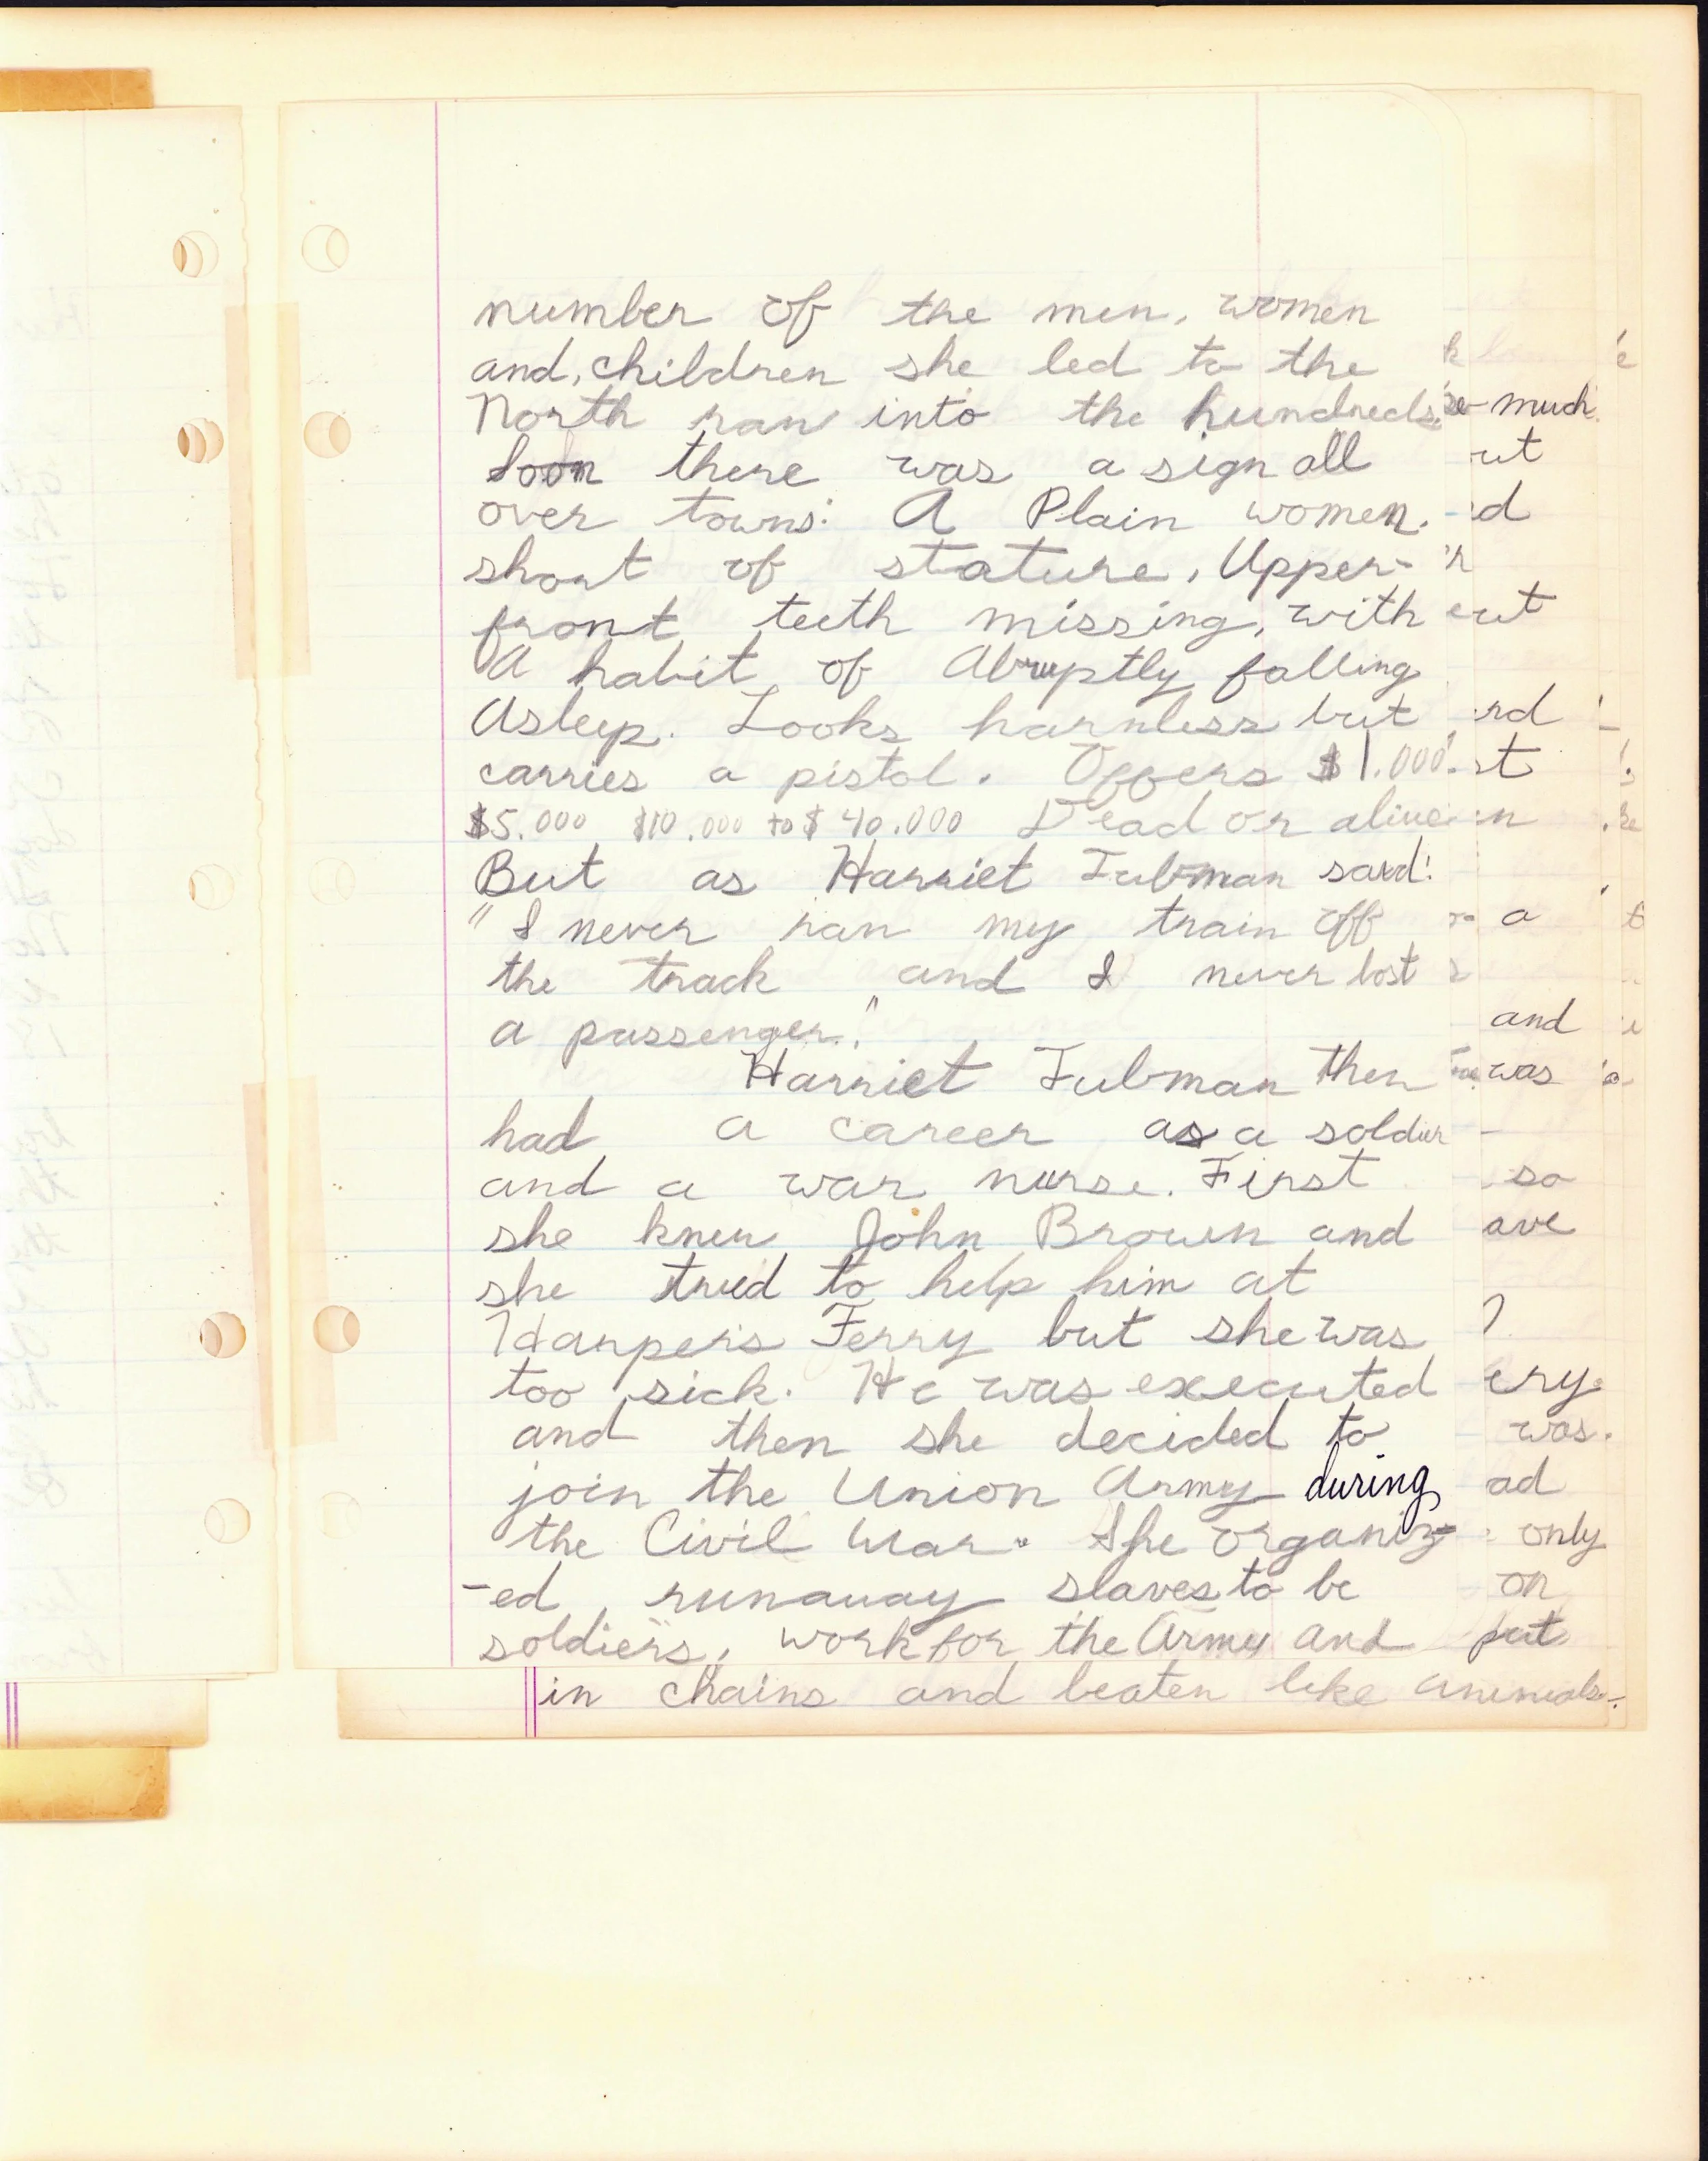 number of the men, women
and, children she led to the
North ran into the hundreds.
Soon there was a sign all
over towns: A Plain women.
short of stature, Upper-
front teeth missing, with
A habit of Abruptly falling
Asleep. Looks harmless but
carries a pistol. Offers $1.000.
$5.000 $10.000 to $40.000 Dead or alive.
But as Harriet Tubman said:
"I never ran my train off
the track and I never lost
a passenger."
Harriet Tubman then
had a career as a soldier
and a war nurse. First
she knew John Brown and
she tried to help him at
Harper's Ferry but she was
too sick. He was executed
and then she decided to
join the Union Army during
the Civil War. She organiz
-ed runaway slaves to be
soldiers, work for the Army and
much
a
and
was
so
was.
only
on
put
in chains and beaten like animals.